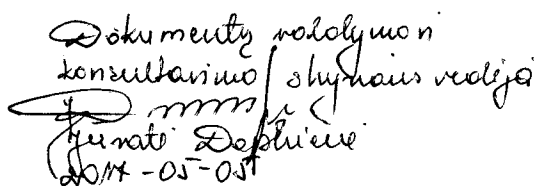 Dokumentų valdymo ir
konsultavimo skyriaus vedėja
Jūratė
2017-05-05